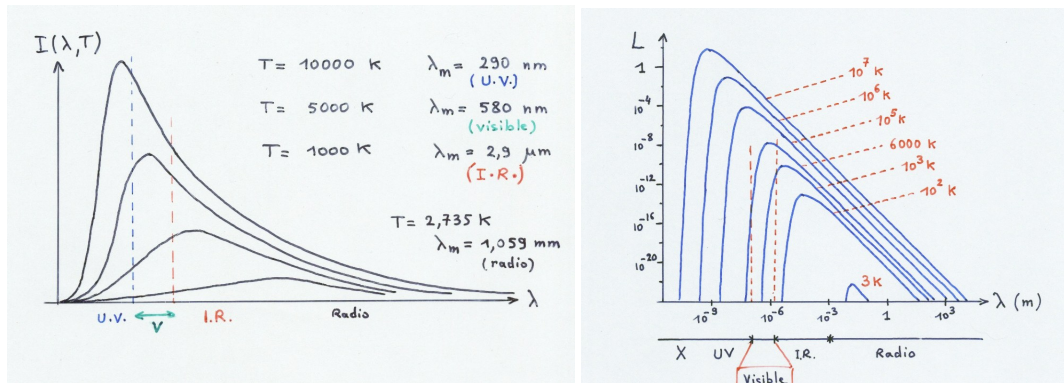 I(λ,T)
T= 10000 K λm = 290 nm
(U.V.)
T= 5000 K λm = 580 nm
(visible)
T= 1000 K λm = 2,9 μm
(I.R.)
T = 2,735 K
λm = 1,059 mm
(radio)
λ
U.V. V I.R. Radio
L
1
10⁻⁴
10⁻⁸
10⁻¹²
10⁻¹⁶
10⁻²⁰
10⁷ K
10⁶ K
10⁵ K
6000 K
10³ K
10² K
3K
λ (m)
10⁻⁹ 10⁻⁶ 10⁻³ 1 10³
X UV I.R. Radio
Visible